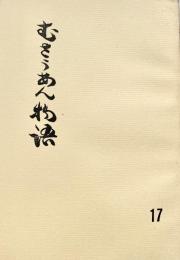 むさうあん物語
17